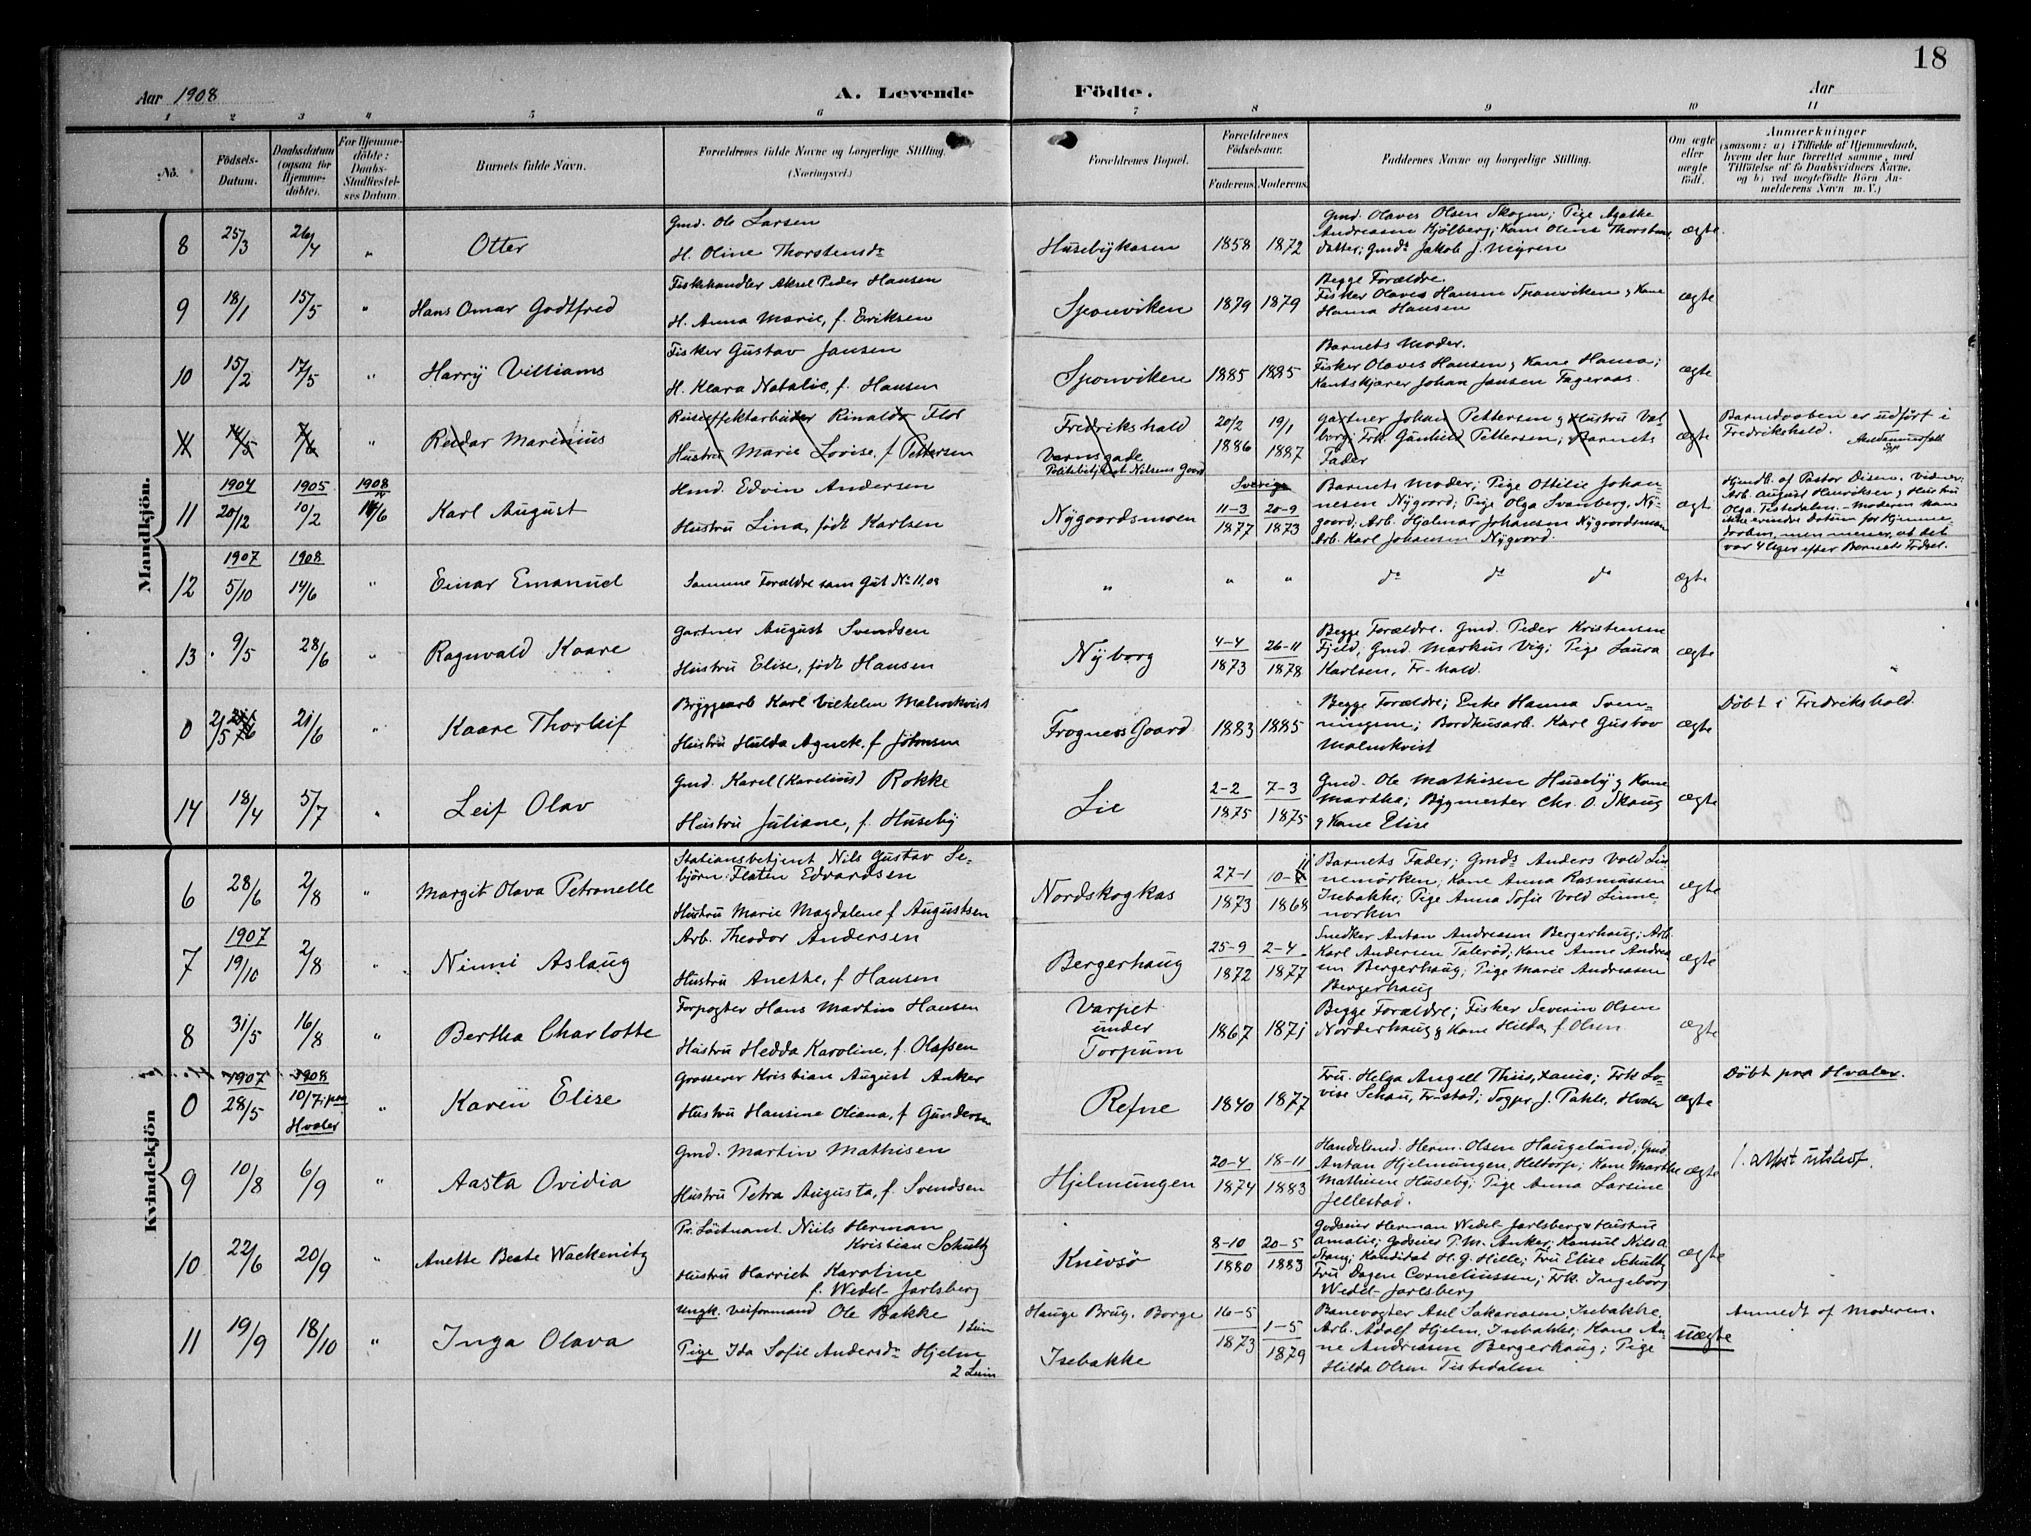 18
Aar 1908
A. Levende
Födte.
Aar
1 2 3 4 5 6 7 8 9 10 11
No.
Födsels-
Datum.
Daabsdatum
(ogsaa for
Hjemme-
döbte).
For Hjemme-
döbte:
Daabs-
Stadfæstel-
ses Datum.
Barnets fulde Navn.
Forældrenes fulde Navne og borgerlige Stilling.
(Næringsvei.)
Forældrenes Bopæl.
Forældrenes
Födselsaar.
Faderens. Moderens.
Faddernes Navne og borgerlige Stilling.
Om ægte
eller
uægte
födt.
Anmærkninger
(saasom: a) i Tilfælde af Hjemmedaab,
hvem der har forrettet samme, med
Tilföielse af to Daabsvidners Navne.
og b) ved uægtefödte Börn An-
melderens Navn m. V.)
Mandkjön.
8 25/3 26/4 " Otter
Gmd. Ole Larsen
H. Oline Thorstensdr
Husebykasen 1858 1872
Gmd. Olaves Olsen Skogen; Pige Agathe
Andreasen Kjölberg; Kone Oline Thorstens
datter; Gmds Jakob J. Myren
ægte
9 18/1 15/5 " Hans Omar Godtfred
Fiskehandler Aksel Peder Hansen
H. Anna Marie, f. Eriksen
Sponviken 1879 1879
Begge Forældre.
Fisker Olaves Hansen Sponviken & Kone
Hanna Hansen
ægte
10 15/2 17/5 " Harry Villiams
Fisker Gustav Jansen
H. Klara Natalie, f. Hansen
Sponviken 1885 1885
Barnets Moder.
Fisker Olaves Hansen & Kone Hanna;
Kantskjærer Johan Jansen Fageraas.
ægte
11 14/5 7/6 " Reidar Marinius
Reiseeffektarbeider Rinaldo Flol
Hustru Marie Lovise, f. Pettersen
Fredrikshald
Værnsgade
Politibetjent Nilsens Gaard
20/2 1886 19/1 1887
Gartner Johan Pettersen & Hustru Val-
borg; Frk. Gunhild Pettersen; Barnets
Fader
ægte
Barnedaaben er udfört i
Fredrikshald.
11 1904 20/12 1905 10/2 1908 14/6 Karl August
Hmd. Edvin Andersen
Hustru Lina, födt Karlsen
Nygaardsmoen
Sverige
11-3 1877 20-9 1873
Barnets Moder; Pige Ottilie Johan-
nesen Nygaard; Pige Olga Svanberg, Ny-
gaard; Arb. Hjalmar Johansen Nygaardsmoen
Arb. Karl Johansen Nygaard.
ægte
Hjmdb. af Pastor Disen. Vidner:
Arb. August Henriksen & Hustru
Olga, Tistedalen. - Moderen kan
ikke erindre datum for hjemme-
daaben, men mener, at det
var 4 Uger efter Barnets Födsel.
12 1907 5/10 1908 14/6 " Einar Emanuel
Samme Forældre som Gut No 11.08
" " " do do do ægte
13 9/5 28/6 " Ragnvald Kaare
Gartner August Svendsen
Hustru Elise, födt Hansen
Nyborg
4-4 1873 26-11 1878
Begge Forældre. Gmd. Peder Kristensen
Fjeld; Gmd. Markus Vig; Pige Laura
Karlsen, Fr-hald.
ægte
0 2/5 21/6 " Kaare Thorleif
Bryggearb Karl Vilhelm Malmkvist
Hustru Hulda Agnete, f. Johnsen
Frogness Gaard 1883 1885
Begge Forældre; Enke Hanna Sven-
ningsen; Bordhusarb. Karl Gustav
Malmkvist
ægte
Döbt i Fredrikshald.
14 18/4 5/7 " Leif Olav
Gmd. Karel (Karelius) Rokke
Hustru Juliane, f. Huseby
Lie
2-2 1875 7-3 1875
Gmd. Ole Mathisen Huseby & Kone
Martha; Bygmester Chr. O. Skaug
& Kone Elise
ægte
Kvindekjön
6 28/6 2/8 " Margit Olava Petronelle
Stationsbetjent Nils Gustav Se-
björn: Flaten Edvardsen
Hustru Marie Magdalene f. Augustsen
Nordskogkas
27-1 1873 10-11 1868
Barnets Fader; Gmds Anders Vold Lin
nemörken; Kone Anna Rasmussen
Isebakke; Pige Anna Sofie Vold Linne
mörken
ægte
7 1907 19/10 2/8 " Ninni Aslaug
Arb. Theodor Andersen
Hustru Anethe, f. Hansen
Bergerhaug
25-9 1872 2-4 1877
Snedker Anton Andreasen Bergerhaug; Arb.
Karl Andersen Taleröd; Kone Anne Andrea
sen Bergerhaug; Pige Marie Andreasen
Bergerhaug
ægte
8 31/5 16/8 " Bertha Charlotte
Forpagter Hans Martin Hansen
Hustru Hedda Karoline, f. Olafsen
Varpet
under
Torpum
1867 1871
Begge Forældre; Fisker Severin Olsen
Norderhaug & Kone Hilda, f. Olsen
ægte
0 1907 28/5 1908 10/7 paa Hvaler " Karen Elise
Grosserer Kristian August Anker
Hustru Hansine Oliana, f. Gundersen
Refne 1840 1877
Fru. Helga Angell Thiis, Xania; Frk Lo-
vise Schau, Fr.stad; Sogpr. J. Pahle, Hvaler
ægte
Döbt paa Hvaler.
9 10/8 6/9 " Aasta Ovidia
Gmd. Martin Mathisen
Hustru Petra Augusta, f. Svendsen
Hjelmungen
20-4 1874 18-11 1883
Handelsmd. Herm. Olsen Haugelund; Gmd.
Anton Hjelmungen, Heltorp; Kone Marthe
Mathisen Huseby; Pige Anna Larsine
Jellestad.
ægte
1. attest utstedt.
10 22/6 20/9 " Anette Beate Wackenitz
Pr. Löitnant Niels Herman
Kristian Schultz
Hustru Harriet Karoline
f. Wedel-Jarlsberg
Knivsö
8-10 1880 20-5 1883
Godseier Herman Wedel-Jarlsberg & Hustru
Amalie; Godseier P. M. Anker; Konsul Nils A
Stang; Kandidat H. G. Hille; Fru Elise Schultz
Fru Dagen Corneliussen; Frk. Ingeborg
Wedel-Jarlsberg
ægte
11 19/9 18/10 " Inga Olava
Ungk. veiformand Ole Bakke
Pige Ida Sofie Andersdr Hjelm
Hauge Brug, Borge
Isebakke
16-5 1873 1-5 1879
Banevogter Axel Sakariasen, Isebakke,
Arb. Adolf Hjelm, Isebakke; Kone An-
ne Andreasen Bergerhaug; Pige
Hilda Olsen Tistedalen
uægte
Anmeldt af Moderen.